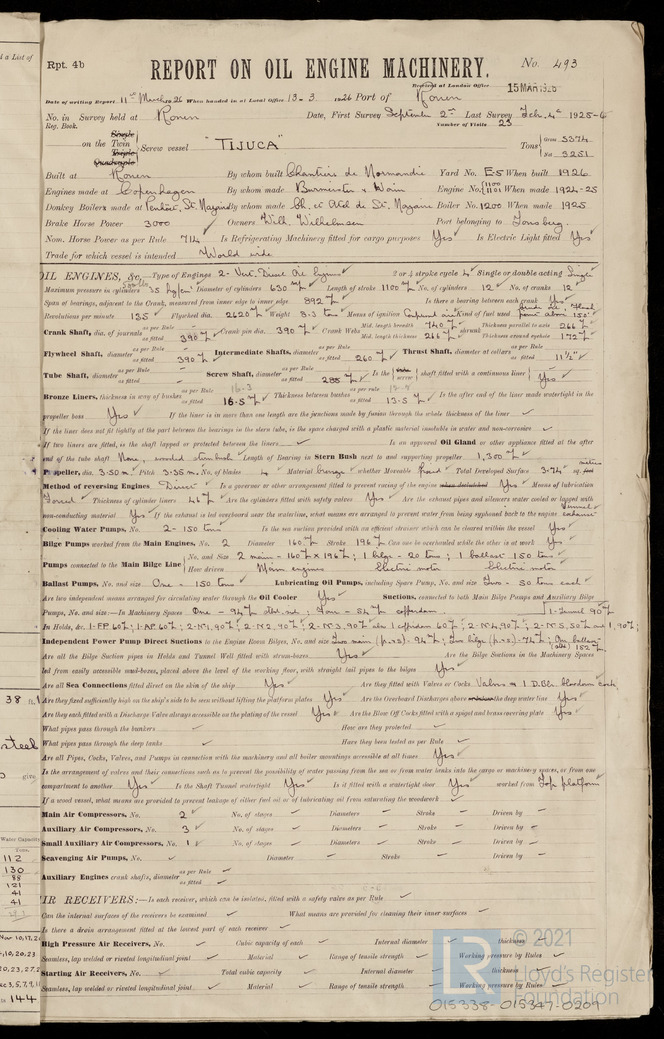 d a List of
Rpt. 4b
REPORT ON OIL ENGINE MACHINERY.
No. 493
Received at London Office 15 MAR 1926
Date of writing Report 11th March 1926 When handed in at Local Office 13-3 1926 Port of Rouen
No. in Survey held at Rouen Date, First Survey September 2nd Last Survey Feb. 4th 1925-6
Reg. Book. Number of Visits 23
on the Single Twin Triple Quadruple Screw vessel "TIJUCA" Tons Gross 5374 Net 3251
Built at Rouen By whom built Chantiers de Normandie Yard No. E-5 When built 1926
Engines made at Copenhagen By whom made Burmeister & Wain Engine No. 1100 1101 When made 1924-25
Donkey Boilers made at Penhoet, St. Nazaire By whom made Ch. et Atel de St. Nazaire Boiler No. 1200 When made 1925
Brake Horse Power 3000 Owners Wilh. Wilhelmsen Port belonging to Tonsberg.
Nom. Horse Power as per Rule 714 Is Refrigerating Machinery fitted for cargo purposes Yes Is Electric Light fitted Yes
Trade for which vessel is intended World wide
OIL ENGINES, &c. Type of Engines 2- Vert. Diesel Oil Engines 2 or 4 stroke cycle 4 Single or double acting Single
Maximum pressure in cylinders 35 kg/cm² Diameter of cylinders 630 Length of stroke 1100 No. of cylinders 12 No. of cranks 12
Span of bearings, adjacent to the Crank, measured from inner edge to inner edge 892 Is there a bearing between each crank Yes
Revolutions per minute 135 Flywheel dia. 2620 Weight 3.3 tons Means of ignition Kind of fuel used above 150°
Crank Shaft, dia. of journals as per Rule as fitted 390 Crank pin dia. 390 Crank Webs Mid. length breadth 740 Mid. length thickness 266 shrunk Thickness parallel to axis 266 Thickness around eyehole 172
Flywheel Shaft, diameter as per Rule as fitted 390 Intermediate Shafts, diameter as per Rule as fitted 260 Thrust Shaft, diameter at collars as per Rule as fitted 11½"
Tube Shaft, diameter as per Rule as fitted Screw Shaft, diameter as per Rule as fitted 285 Is the tube screw shaft fitted with a continuous liner Yes
Bronze Liners, thickness in way of bushes as per Rule 16.3 as fitted 16.5 Thickness between bushes as per rule as fitted 13.5 Is the after end of the liner made watertight in the
propeller boss Yes If the liner is in more than one length are the junctions made by fusion through the whole thickness of the liner
If the liner does not fit tightly at the part between the bearings in the stern tube, is the space charged with a plastic material insoluble in water and non-corrosive
If two liners are fitted, is the shaft lapped or protected between the liners Is an approved Oil Gland or other appliance fitted at the after
end of the tube shaft None, wooded stern bush Length of Bearing in Stern Bush next to and supporting propeller 1,300
Propeller, dia. 3.50 m. Pitch 3.35 m. No. of blades 4 Material bronze whether Moveable fixed Total Developed Surface 3.74 sq. metres
Method of reversing Engines Direct Is a governor or other arrangement fitted to prevent racing of the engine when declutched Yes Means of lubrication
Forced Thickness of cylinder liners 46 Are the cylinders fitted with safety valves Yes Are the exhaust pipes and silencers water cooled or lagged with
non-conducting material Yes If the exhaust is led overboard near the waterline, what means are arranged to prevent water from being syphoned back to the engine
Cooling Water Pumps, No. 2- 150 tons Is the sea suction provided with an efficient strainer which can be cleared within the vessel Yes
Bilge Pumps worked from the Main Engines, No. 2 Diameter 160 Stroke 196 Can one be overhauled while the other is at work Yes
Pumps connected to the Main Bilge Line No. and Size 2 main - 160 x 196; 1 bilge - 20 tons; 1 ballast 150 tons
How driven Main engines Electric motor Electric motor
Ballast Pumps, No. and size One - 150 tons Lubricating Oil Pumps, including Spare Pump, No. and size Two - 50 tons each
Are two independent means arranged for circulating water through the Oil Cooler Yes Suctions, connected to both Main Bilge Pumps and Auxiliary Bilge
Pumps, No. and size:—In Machinery Spaces 1-Tunnel 90
In Holds, &c. 1-FP 60; 1-AP 60; 2-N°1, 90; 2-N°2, 90; 2-N°3, 90 also 1 cofferdam 60; 2-N°4, 90; 2-N°5, 50 and 1, 90;
Independent Power Pump Direct Suctions to the Engine Room Bilges, No. and size Two main (p.&s) - 94; Two bilge (p.&s) - 74; One ballast 152
Are all the Bilge Suction pipes in Holds and Tunnel Well fitted with strum-boxes Yes Are the Bilge Suctions in the Machinery Spaces
led from easily accessible mud-boxes, placed above the level of the working floor, with straight tail pipes to the bilges Yes
Are all Sea Connections fitted direct on the skin of the ship Yes Are they fitted with Valves or Cocks Valves & 1 D.Blr. blowdown cock
Are they fixed sufficiently high on the ship's side to be seen without lifting the platform plates Yes Are the Overboard Discharges above or below the deep water line Yes
Are they each fitted with a Discharge Valve always accessible on the plating of the vessel Yes Are the Blow Off Cocks fitted with a spigot and brass covering plate Yes
What pipes pass through the bunkers How are they protected
What pipes pass through the deep tanks Have they been tested as per Rule
Are all Pipes, Cocks, Valves, and Pumps in connection with the machinery and all boiler mountings accessible at all times Yes
Is the arrangement of valves and their connections such as to prevent the possibility of water passing from the sea or from water tanks into the cargo or machinery spaces, or from one
compartment to another Yes Is the Shaft Tunnel watertight Yes Is it fitted with a watertight door Yes worked from Top platform
If a wood vessel, what means are provided to prevent leakage of either fuel oil or of lubricating oil from saturating the woodwork
Main Air Compressors, No. 2 No. of stages Diameters Stroke Driven by
Auxiliary Air Compressors, No. 3 No. of stages Diameters Stroke Driven by
Small Auxiliary Air Compressors, No. 1 No. of stages Diameters Stroke Driven by
Scavenging Air Pumps, No. Diameter Stroke Driven by
Auxiliary Engines crank shafts, diameter as per Rule as fitted
AIR RECEIVERS:—Is each receiver, which can be isolated, fitted with a safety valve as per Rule
Can the internal surfaces of the receivers be examined What means are provided for cleaning their inner surfaces
Is there a drain arrangement fitted at the lowest part of each receiver
High Pressure Air Receivers, No. Cubic capacity of each Internal diameter thickness
Seamless, lap welded or riveted longitudinal joint Material Range of tensile strength Working pressure by Rules
Starting Air Receivers, No. Total cubic capacity Internal diameter thickness
Seamless, lap welded or riveted longitudinal joint Material Range of tensile strength Working pressure by Rules
38
steel
give
Water Capacity
Tons.
112
130
88
121
41
41
144
LR
© 2021
Lloyd's Register
Foundation
015338-015347-0209